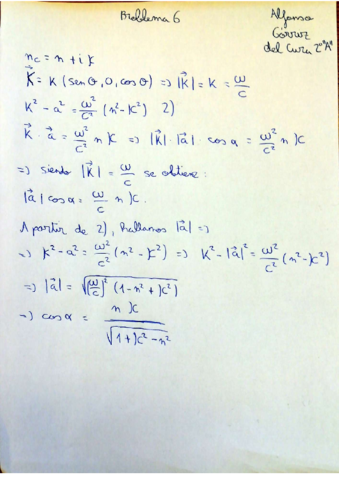 Problema 6
Alfonso
Gorruz
del Cura 2º"A"
n_c = n + i κ
K⃗ = K (sen θ, 0, cos θ) => |K⃗| = K = ω/c
K² - a² = ω²/c² (n² - κ²) 2)
K⃗ · a⃗ = ω²/c² n κ => |K⃗| · |a⃗| · cos α = ω²/c² n κ
=> siendo |K⃗| = ω/c se obtiene:
|a⃗| cos α = ω/c n κ.
A partir de 2), hallamos |a⃗| =>
=> K² - a² = ω²/c² (n² - κ²) => K² - |a⃗|² = ω²/c² (n² - κ²)
=> |a⃗| = √((ω/c)² (1 - n² + κ²))
=> cos α = n κ / √(1 + κ² - n²)